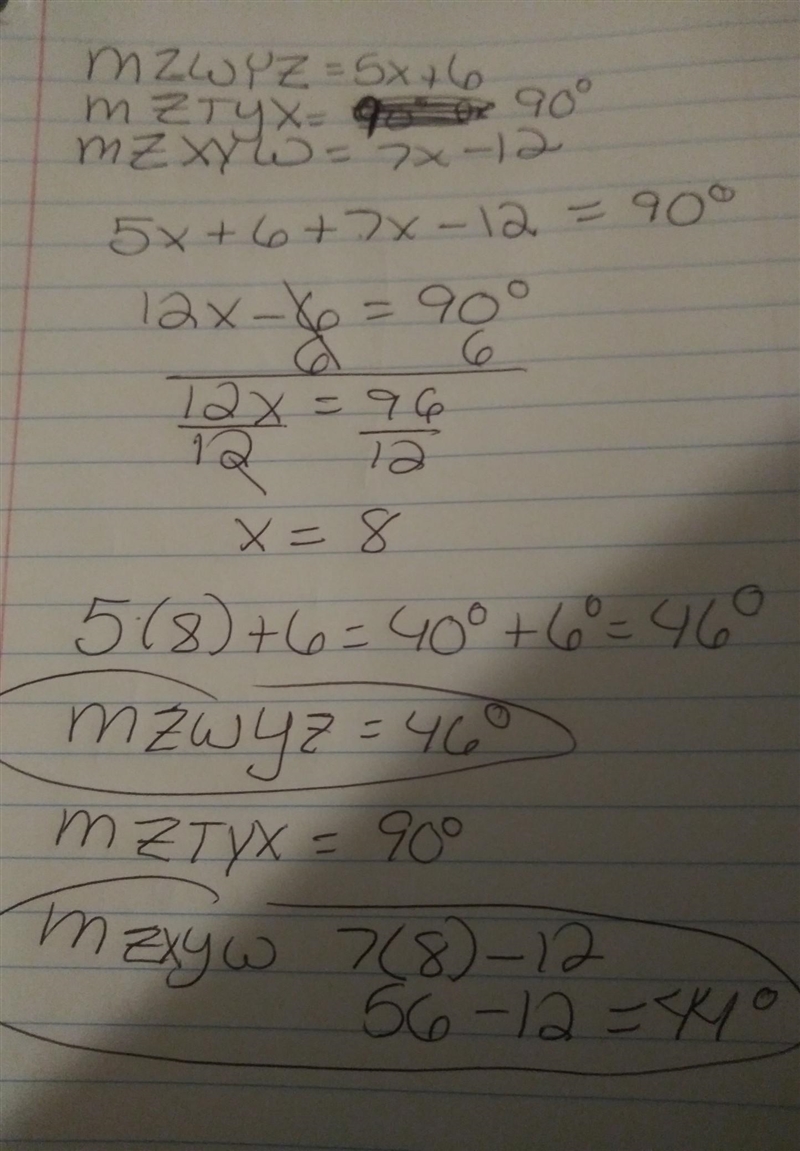 m∠WYZ = 5x+6
m∠TYX = 90°
m∠XYW = 7x-12
5x + 6 + 7x - 12 = 90°
12x - 6 = 90°
6 6
12x = 96
12 12
x = 8
5(8)+6 = 40° + 6° = 46°
m∠WYZ = 46°
m∠TYX = 90°
m∠XYW 7(8)-12
56 - 12 = 44°